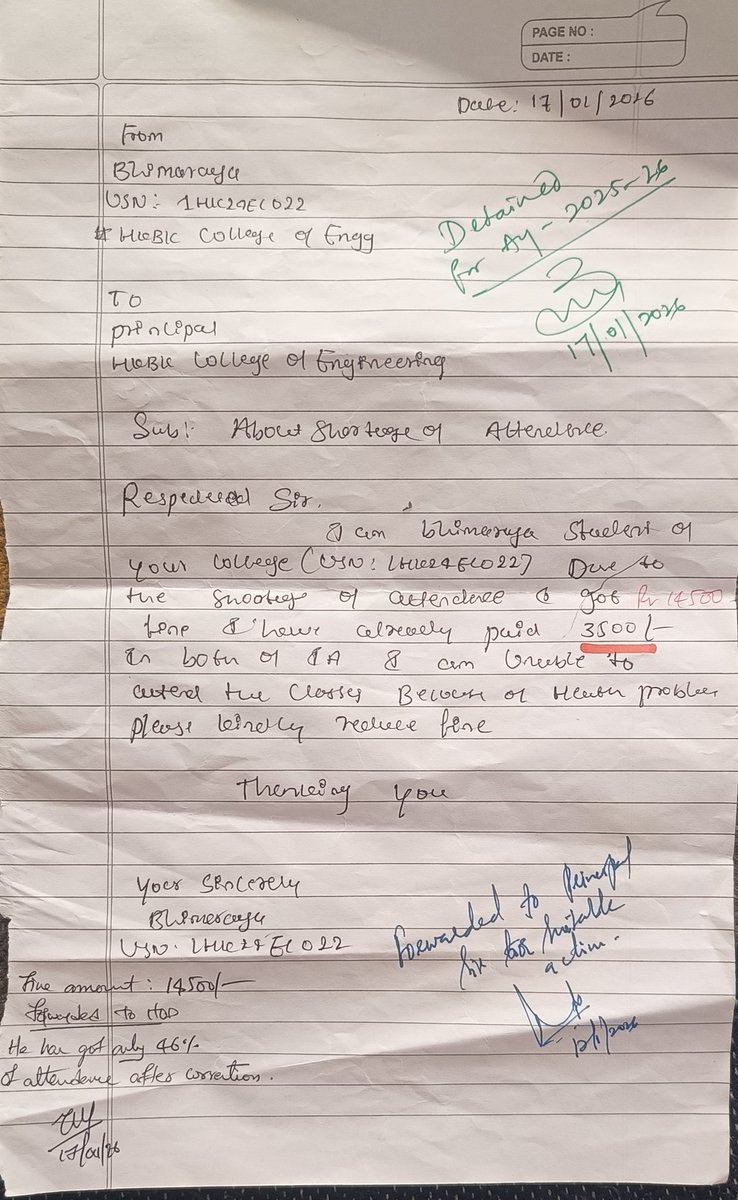 PAGE NO :
DATE :
Date: 17/01/2026
From
Bhimaraya
USN: 1HK24EC022
HKBK College of Engg
Detained
for AY - 2025-26
17/01/2026
To
principal
HKBK College of Engineering
Sub: About Shortage of Attendence
Respected Sir.
I am bhimaraya Student of
your college (USN: 1HK24EC022) Due to
the shortage of attendence I got Rs 14500
fine I have already paid 3500/-
In both of IA I am Unable to
attend the classes Because of Health problem
please kindly reduce fine
Thanking you
your Sincerely
Bhimaraya
USN. 1HK24EC022
Forwarded to Principal
Sir for suitable
action.
Fine amount : 14500/-
Forwarded to HOD
He has got only 46%
of attendence after correction.
17/01/26